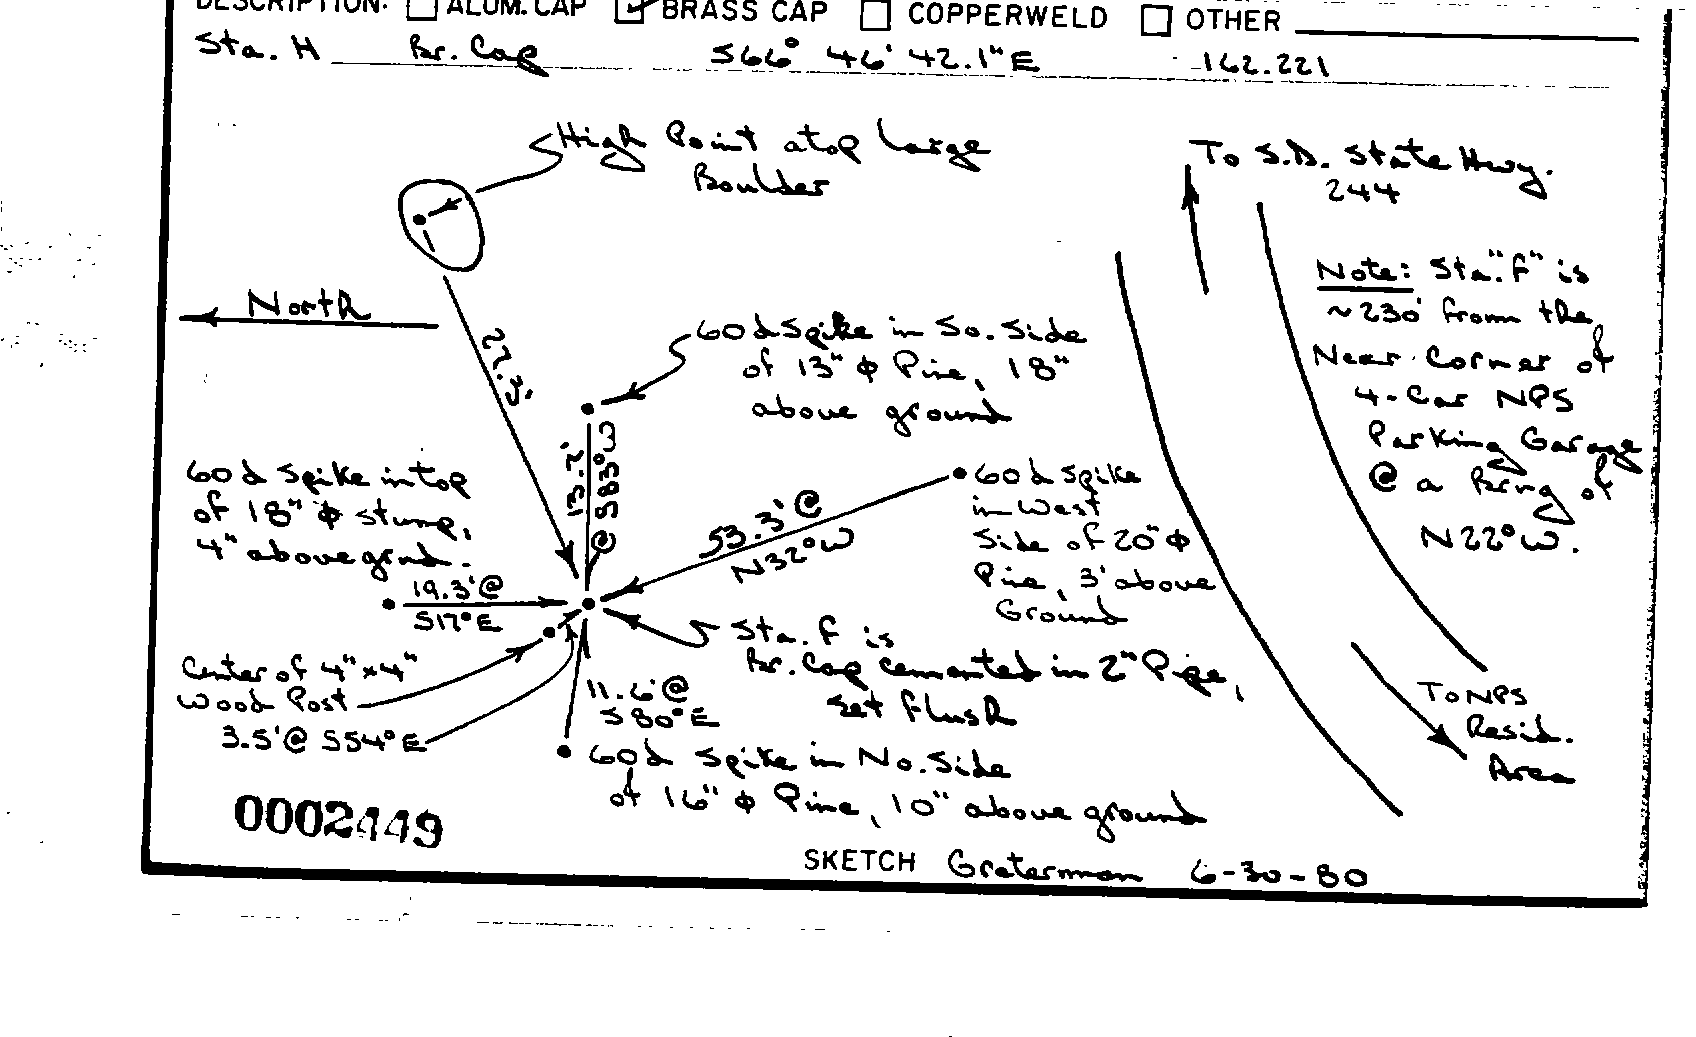 DESCRIPTION: ALUM. CAP BRASS CAP COPPERWELD OTHER
Sta. H Br. Cap S66° 46' 42.1" E 162.221
High Point atop large
Boulder
To S.D. State Hwy.
244
North
27.3'
60d Spike in So. Side
of 13" ϕ Pine, 18"
above ground
Note: Sta. "F" is
~230' from the
Near Corner of
4-Car NPS
Parking Garage
@ a Brng of
N22°W.
13.2'
@ S83°W
60d Spike in top
of 18" ϕ stump,
4" above grnd.
19.3' @
S17°E
53.3' @
N32°W
60d Spike
in West
Side of 20" ϕ
Pine, 3' above
Ground
Sta. F is
Br. Cap cemented in 2" Pipe,
set flush
Center of 4"x4"
Wood Post
3.5' @ S54°E
11.6' @
S80°E
60d Spike in No. Side
of 16" ϕ Pine, 10" above ground
To NPS
Resid.
Area
0002449
SKETCH Graterman 6-30-80